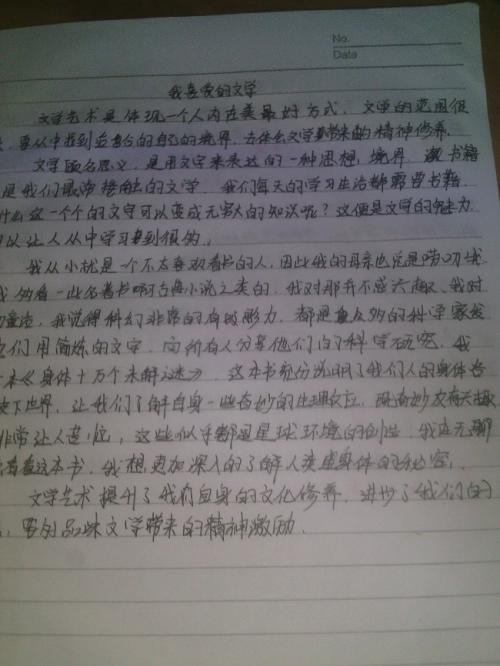 No.
Date
我喜爱的文学
文学艺术是体现一个人内在美最好方式．文学的范围很
，要从中找到适合的自己的境界．去体会文学带来的精神修养．
文学顾名思义，是用文字来表达的一种思想，境界．读书籍
是我们最常接触的文学．我们每天的学习生活都需要书籍．
什么这一个个的文字可以变成无穷大的知识呢？这便是文学的魅力
可以让人从中学习到很多．
我从小就是一个不太喜欢看书的人，因此我的母亲也总是唠叨我
我多看一些名著书啊古典小说之类的．我对那并不感兴趣、我对
，我觉得科幻非常的有吸引力．都是众多的科学家发
们用简练的文字．向所有人分享他们的科学研究．我
本《身体十万个未解谜》．这本书充份说明了我们人的身体各
世界．让我们了解自身一些奇妙的生理效应．既奇妙又有兴趣
非常让人着迷，这些似乎都是星球环境的创造．我在无聊
看看这本书．我想更加深入的了解人类身体的秘密．
文学艺术提升了我们自身的文化修养．进步了我们的
，要多品味文学带来的精神激励．